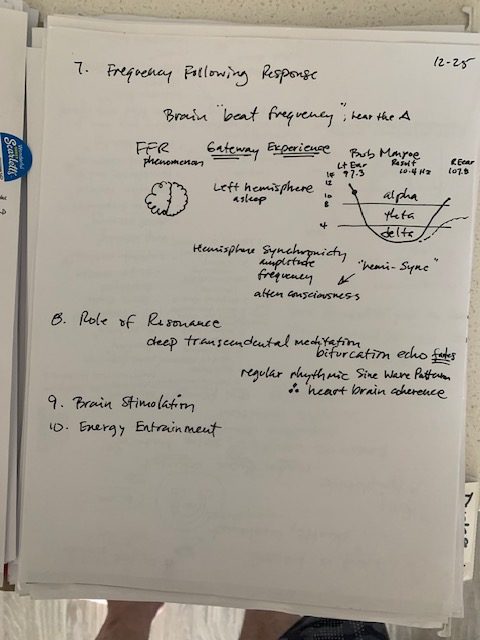 12-25
7. Frequency Following Response
Brain "beat frequency"; hear the Δ
FFR
phenomenon
Gateway Experience
Bob Monroe
Lt Ear
97.3
Result
10.4 Hz
R Ear
107.8
Left hemisphere
asleep
12
10
8
4
alpha
theta
delta
Hemisphere Synchronicity
amplitude
frequency
"hemi-Sync"
alters consciousness
8. Role of Resonance
deep transcendental meditation
bifurcation echo fades
regular rhythmic Sine Wave Pattern
∴ heart brain coherence
9. Brain Stimolation
10. Energy Entrainment
Scarlett